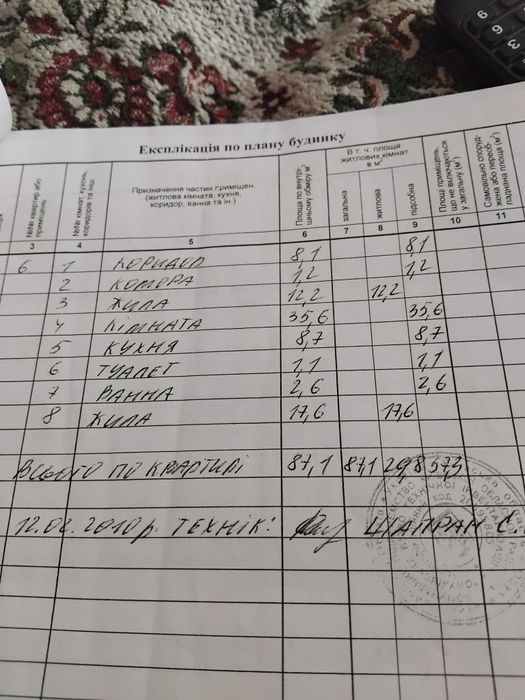 Експлікація по плану будинку
№№ квартир або приміщень
№№ кімнат, кухонь, коридорів та інш
Призначення частин приміщень (житлова кімната, кухня, коридор, ванна та ін.)
Площа по внутрішньому обміру м²
В т. ч. площа житлових кімнат в м²
загальна
житлова
підсобна
Площі приміщень, що не включаються у загальну (м²)
Самовільно споруджена або переобладнана площа (м²)
3 4 5 6 7 8 9 10 11
6 1 КОРИДОР 8,1 8,1
2 КОМОРА 1,2 1,2
3 ЖИЛА 12,2 12,2
4 КІМНАТА 35,6 35,6
5 КУХНЯ 8,7 8,7
6 ТУАЛЕТ 1,1 1,1
7 ВАННА 2,6 2,6
8 ЖИЛА 17,6 17,6
ВСЬОГО ПО КВАРТИРІ 87,1 87,1 29,8 57,3
12.02.2010 р. ТЕХНІК: ШАПРАН С.